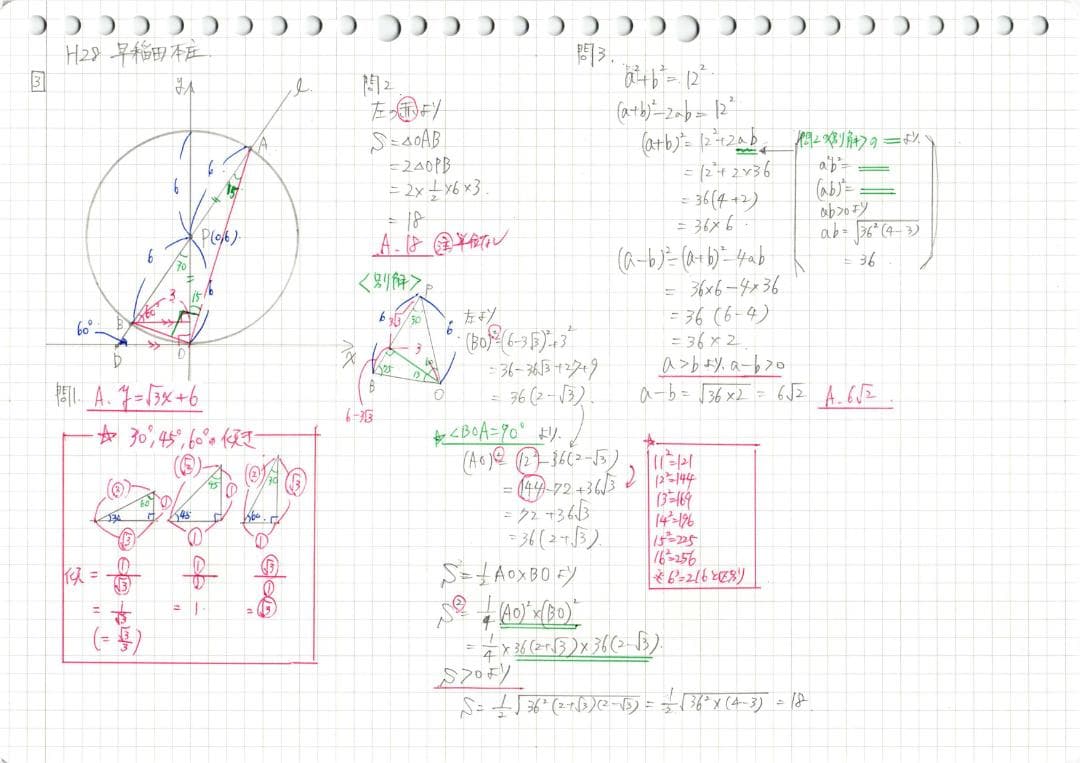 H28 早稲田本庄.
3
y
l
A
6
6
15
P(0,6).
6
30
15
6
3
60°
B
60°
D
O
x
問1. A. y=√3x+6
☆ 30°,45°,60°の傾き
② 60 ① 30 √3
√2 45 ① 45 ①
② 30 √3 60 ①
傾 = ①/√3 ①/① √3/①
= 1/√3 = 1. = √3
(= √3/3)
問2.
左の赤より
S=△OAB
=2△OPB
=2×1/2×6×3.
= 18
A. 18 注 単位なし
<別解>
P
6
3√3
30
6
3
60
B
75
15
O
6-3√3
左より
(BO)²=(6-3√3)²+3²
=36-36√3+27+9
= 36(2-√3).
☆ <BOA=90° より.
(AO)²= 12²-36(2-√3)
= 144-72+36√3
= 72+36√3
= 36(2+√3).
S=1/2 AO×BO より
S²= 1/4 (AO)²×(BO)²
= 1/4 × 36(2+√3)×36(2-√3).
S>0より
S= 1/2 √36²(2+√3)(2-√3) = 1/2 √36²×(4-3) = 18.
問3.
a²+b²=12².
(a+b)²-2ab=12²
(a+b)²=12²+2ab
=12²+2×36
=36(4+2)
=36×6.
問2の<別解>の = より.
a²b²=
(ab)²=
ab>0より
ab=√36²(4-3)
= 36.
(a-b)²=(a+b)²-4ab
= 36×6-4×36
= 36(6-4)
= 36×2.
a>bより, a-b>0
a-b=√36×2 = 6√2 A. 6√2
☆
11²=121
12²=144
13²=169
14²=196
15²=225
16²=256
※6³=216と区別)